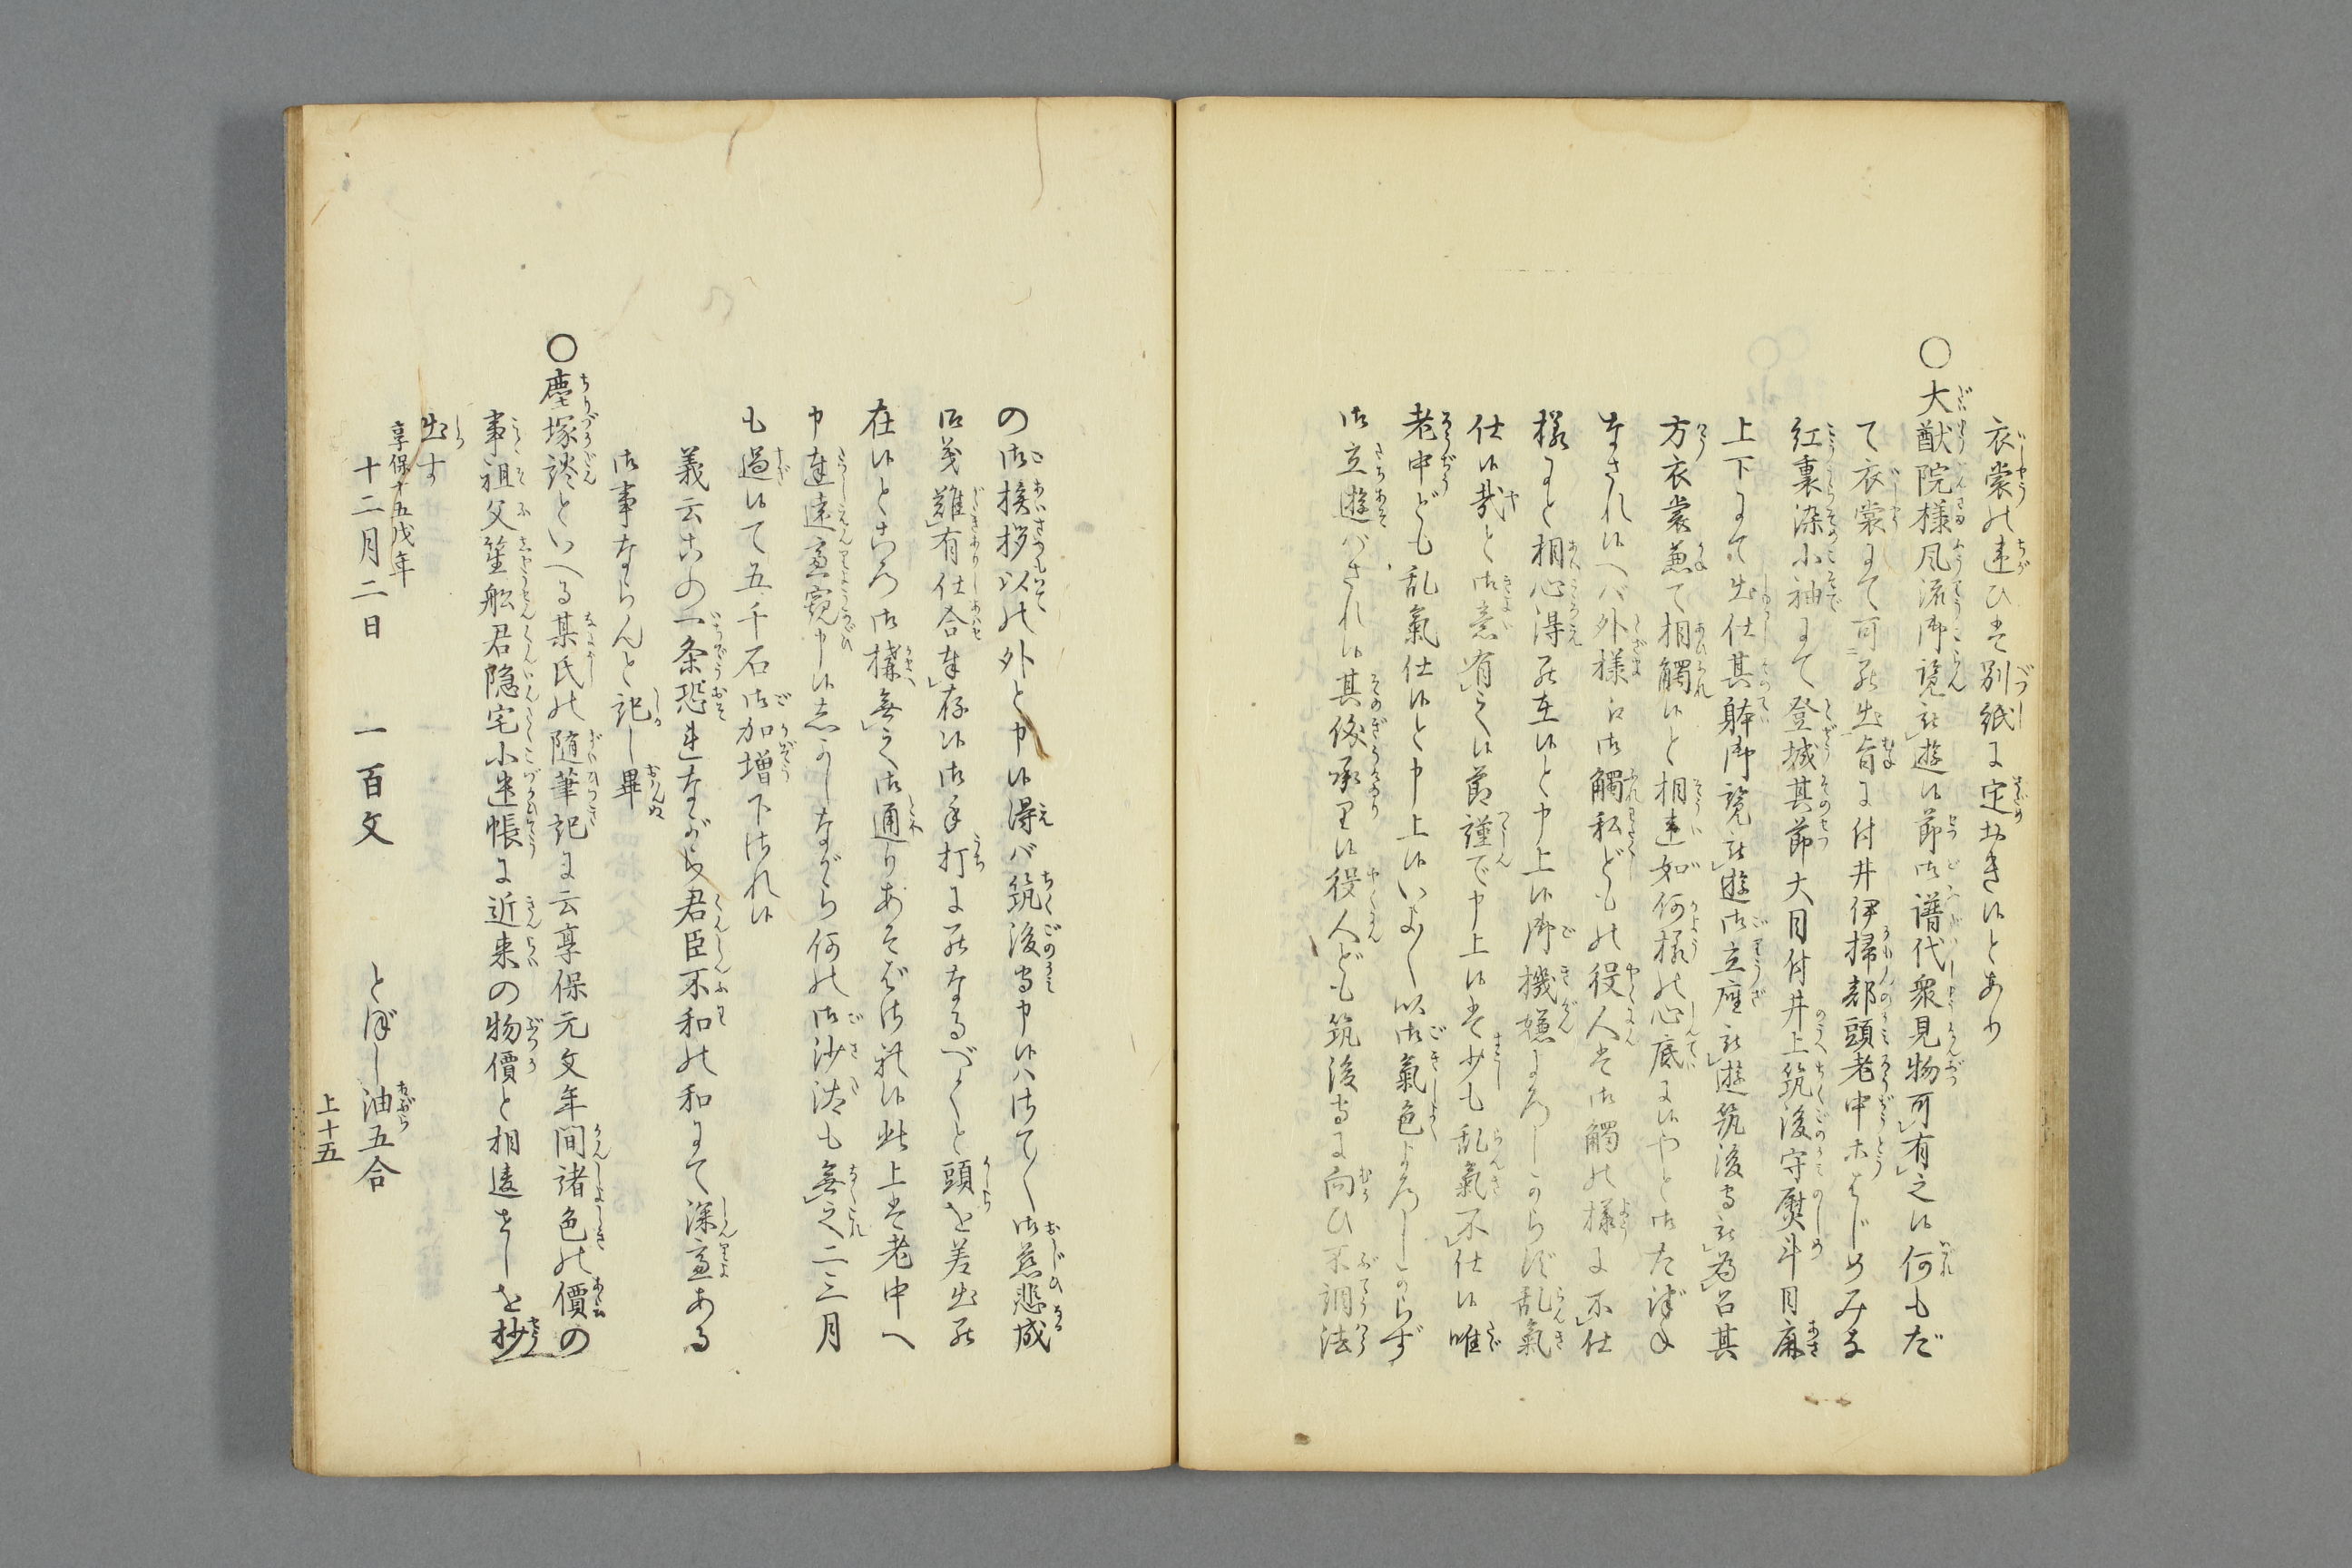 衣裳の違ひは別紙に定おき候とあり
○大猷院様風流御覧被遊候節御譜代衆見物可有之候何もだ
て衣裳にて可罷出旨に付井伊掃部頭老中ホはじめみな
紅裏染小袖にて登城其節大目付井上筑後守熨斗目麻
上下にて出仕其躰御覧被遊御立座被遊筑後守被為召其
方衣裳兼て相觸候と相違如何様の心底に候やと御たづね
なされ候へバ外様は御觸私どもの役人は御觸の様に不仕
様にと相心得罷在候と申上候御機嫌よろしからず乱氣
仕候哉と御意有之候節謹で申上候は少も乱氣不仕候唯
老中ども乱氣仕候と申上候いよ〱以御氣色よろしからず
御立遊バされ候其後承り候役人ども筑後守に向ひ不調法
の御挨拶以の外と申候得バ筑後守申候ハさて〱御慈悲成
御義難有仕合奉存候御手打に罷なるべくと頭を差出罷
在候ところ御構無之御通りあそばされ候此上は老中へ
申達遠慮窺申候志かしながら何の御沙汰も無之二三月
も過候て五千石御加増下され候
義云右の一条恐連ながら君臣不和の和にて深慮ある
御事ならんと記し畢
○塵塚談といへる某氏の随筆記に云享保元文年間諸色の價の
事祖父笙船君隠宅小遣帳に近来の物價と相違せしを抄
出す
享保十五戌年
十二月二日　一百文　とぼし油五合
上十五